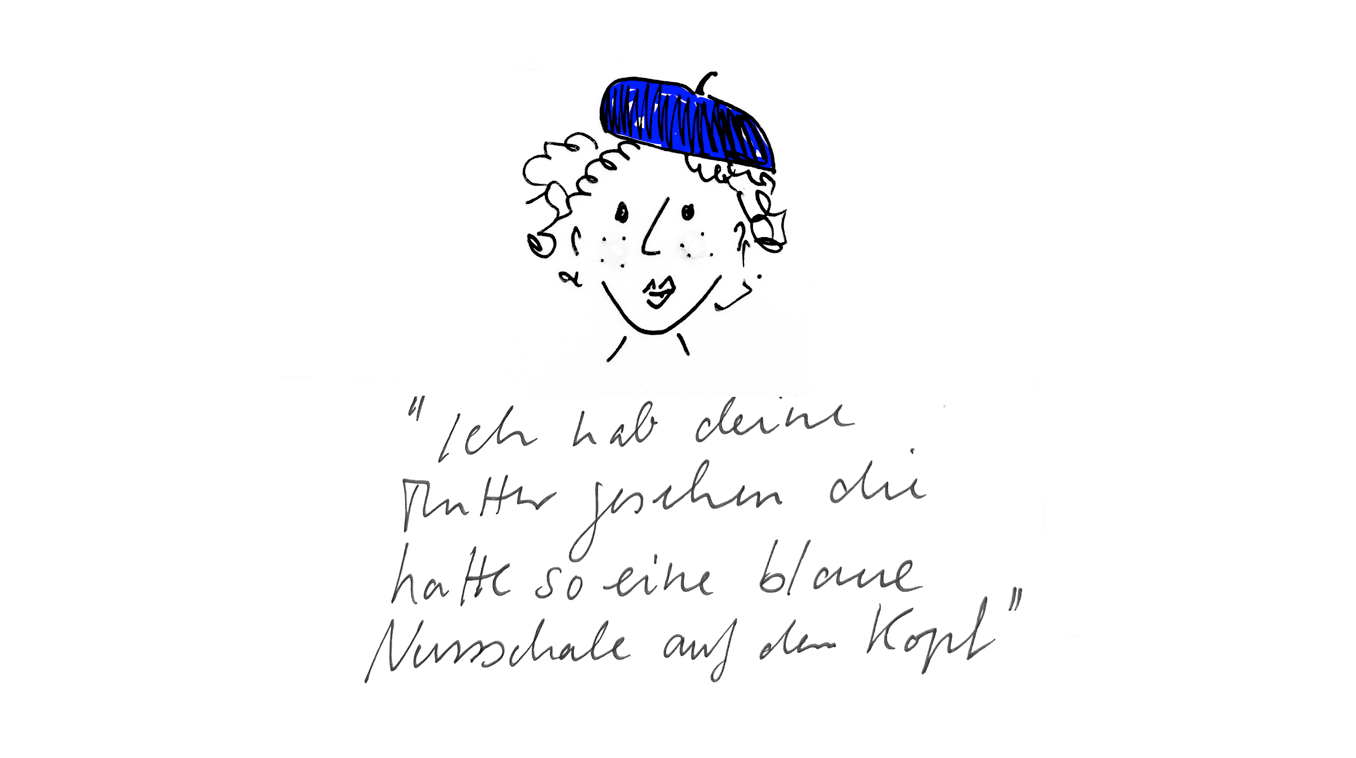 "Ich hab deine
Mutter gesehen die
hatte so eine blaue
Nussschale auf dem Kopf"